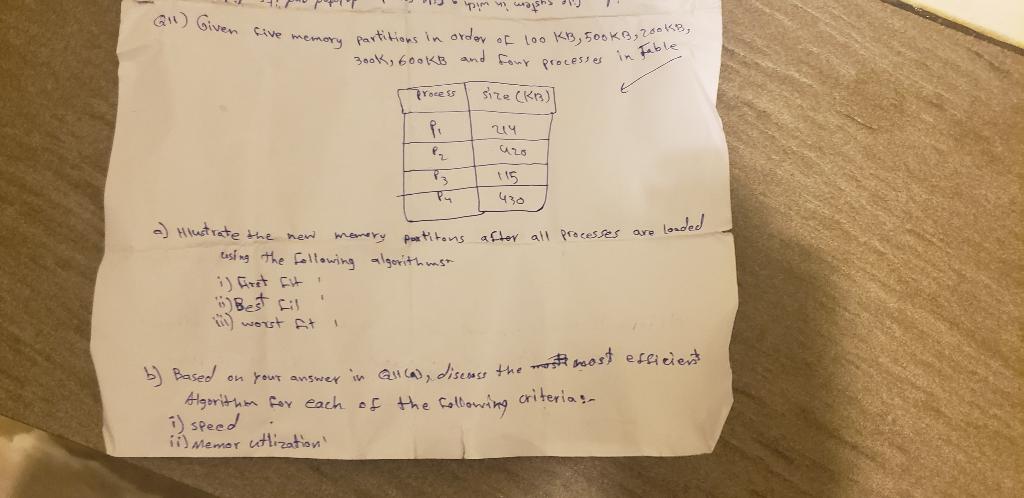 file system in which a file is
Q11) Given five memory partitions in order of 100 KB, 500KB, 200KB,
300K, 600KB and four processes in Table
process size (KB)
P1 214
P2 420
P3 115
P4 430
a) Illustrate the new memory partitons after all processes are loaded
using the following algorithms:-
i) First fit
ii) Best fit
iii) worst fit
b) Based on your answer in Q11(a), discuss the most efficient
Algorithm for each of the following criteria:-
i) speed
ii) Memor utlization